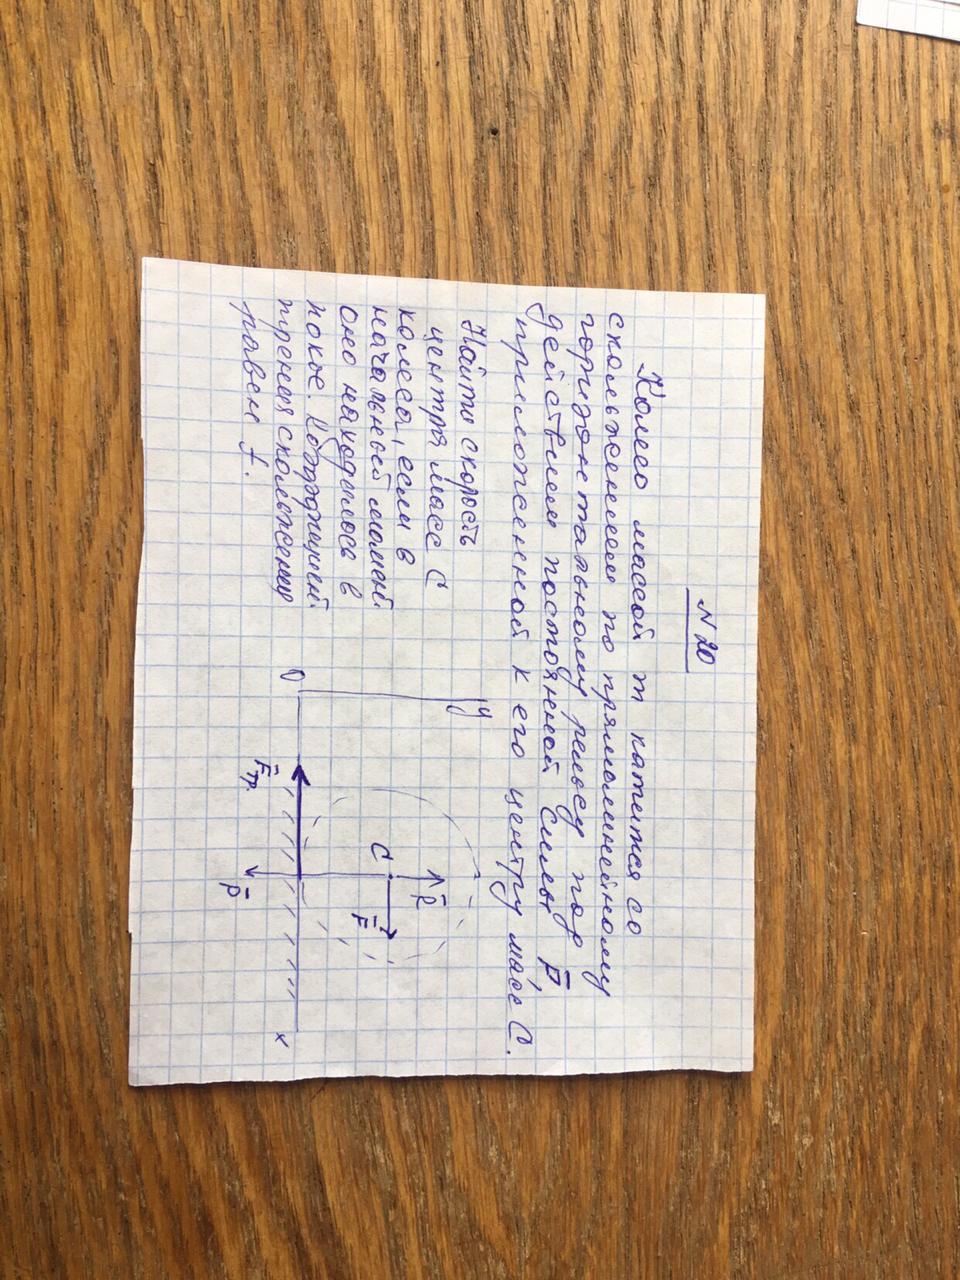 N 20
Колесо массой m катится со
скольжением по прямолинейному
горизонтальному рельсу под
действием постоянной силы F̄,
приложенной к его центру масс C.
Найти скорость
центра масс C
колеса, если в
начальный момент
оно находилось в
покое. Коэффициент
трения скольжения
равен f.
y
R̄
C
F̄
O
x
F̄тр.
P̄